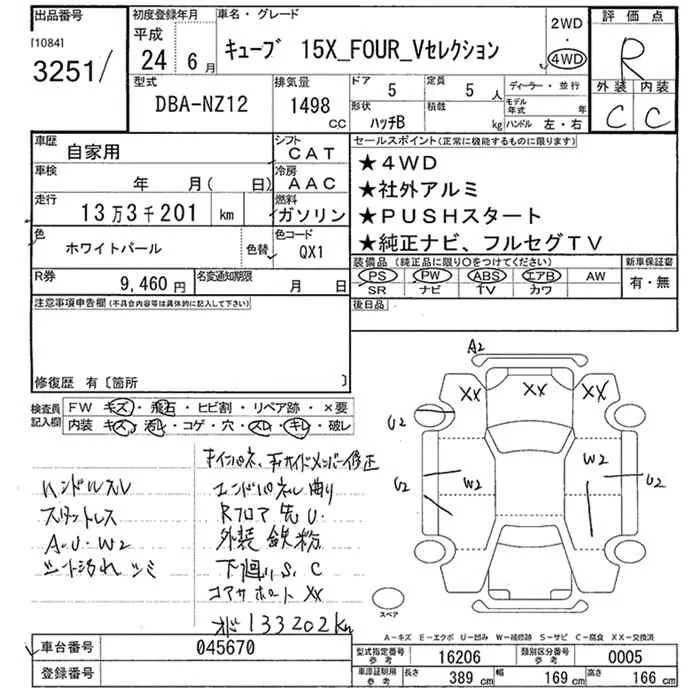 出品番号
[1084]
3251/
初度登録年月
平成
24 6月
車名・グレード
キューブ 15X_FOUR_Vセレクション
2WD
・
4WD
評価点
R
外装 内装
C C
型式
DBA-NZ12
排気量
1498
CC
ドア
5
定員
5 人
形状
ハッチB
積載
kg
ディーラー・並行
モデル年式 年
ハンドル 左・右
車歴
自家用
シフト
CAT
車検
年 月( 日)
冷房
AAC
走行
13万3千201 km
燃料
ガソリン
色
ホワイトパール
色替
色コード
QX1
R券
9,460円
名変通知期限
月 日
セールスポイント(正常に機能するものに限ります)
★4WD
★社外アルミ
★PUSHスタート
★純正ナビ、フルセグTV
装備品(純正品に限り○をつけてください)
PS PW ABS エアB AW
SR ナビ TV カワ
新車保証書
有・無
後日品
注意事項申告欄(不具合内容等は具体的に記入して下さい)
修復歴 有〔箇所 〕
検査員記入欄
FW キズ・飛石・ヒビ割・リペア跡・×要
内装 キズ・汚レ・コゲ・穴・スレ・キレ・破レ
ハンドルスレ
スタットレス
A・U・W2
シート汚れ シミ
エンドパネル曲り
Rフロア 先U.
外装 鉄粉
下廻り S、C
コアサポート XX
133202km
A2
XX XX XX
U2
W2
U2
W2
U2
スペア
A-キズ E-エクボ U-凹み W-補修跡 S-サビ C-腐食 XX-交換済
車台番号
045670
登録番号
型式指定番号
参考
16206
類別区分番号
参考
0005
車庫証明用
参考
長さ 389 cm 幅 169 cm 高さ 166 cm